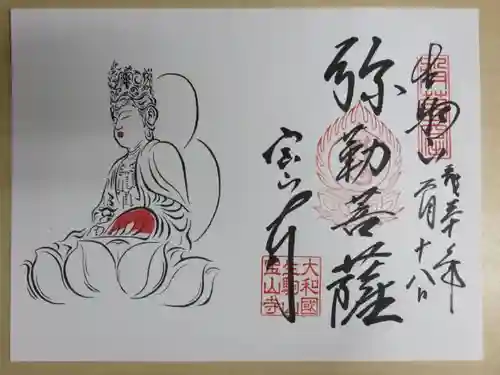 生駒山
月十八日
弥勒菩薩
宝山寺
大和國
生駒山
寳山寺